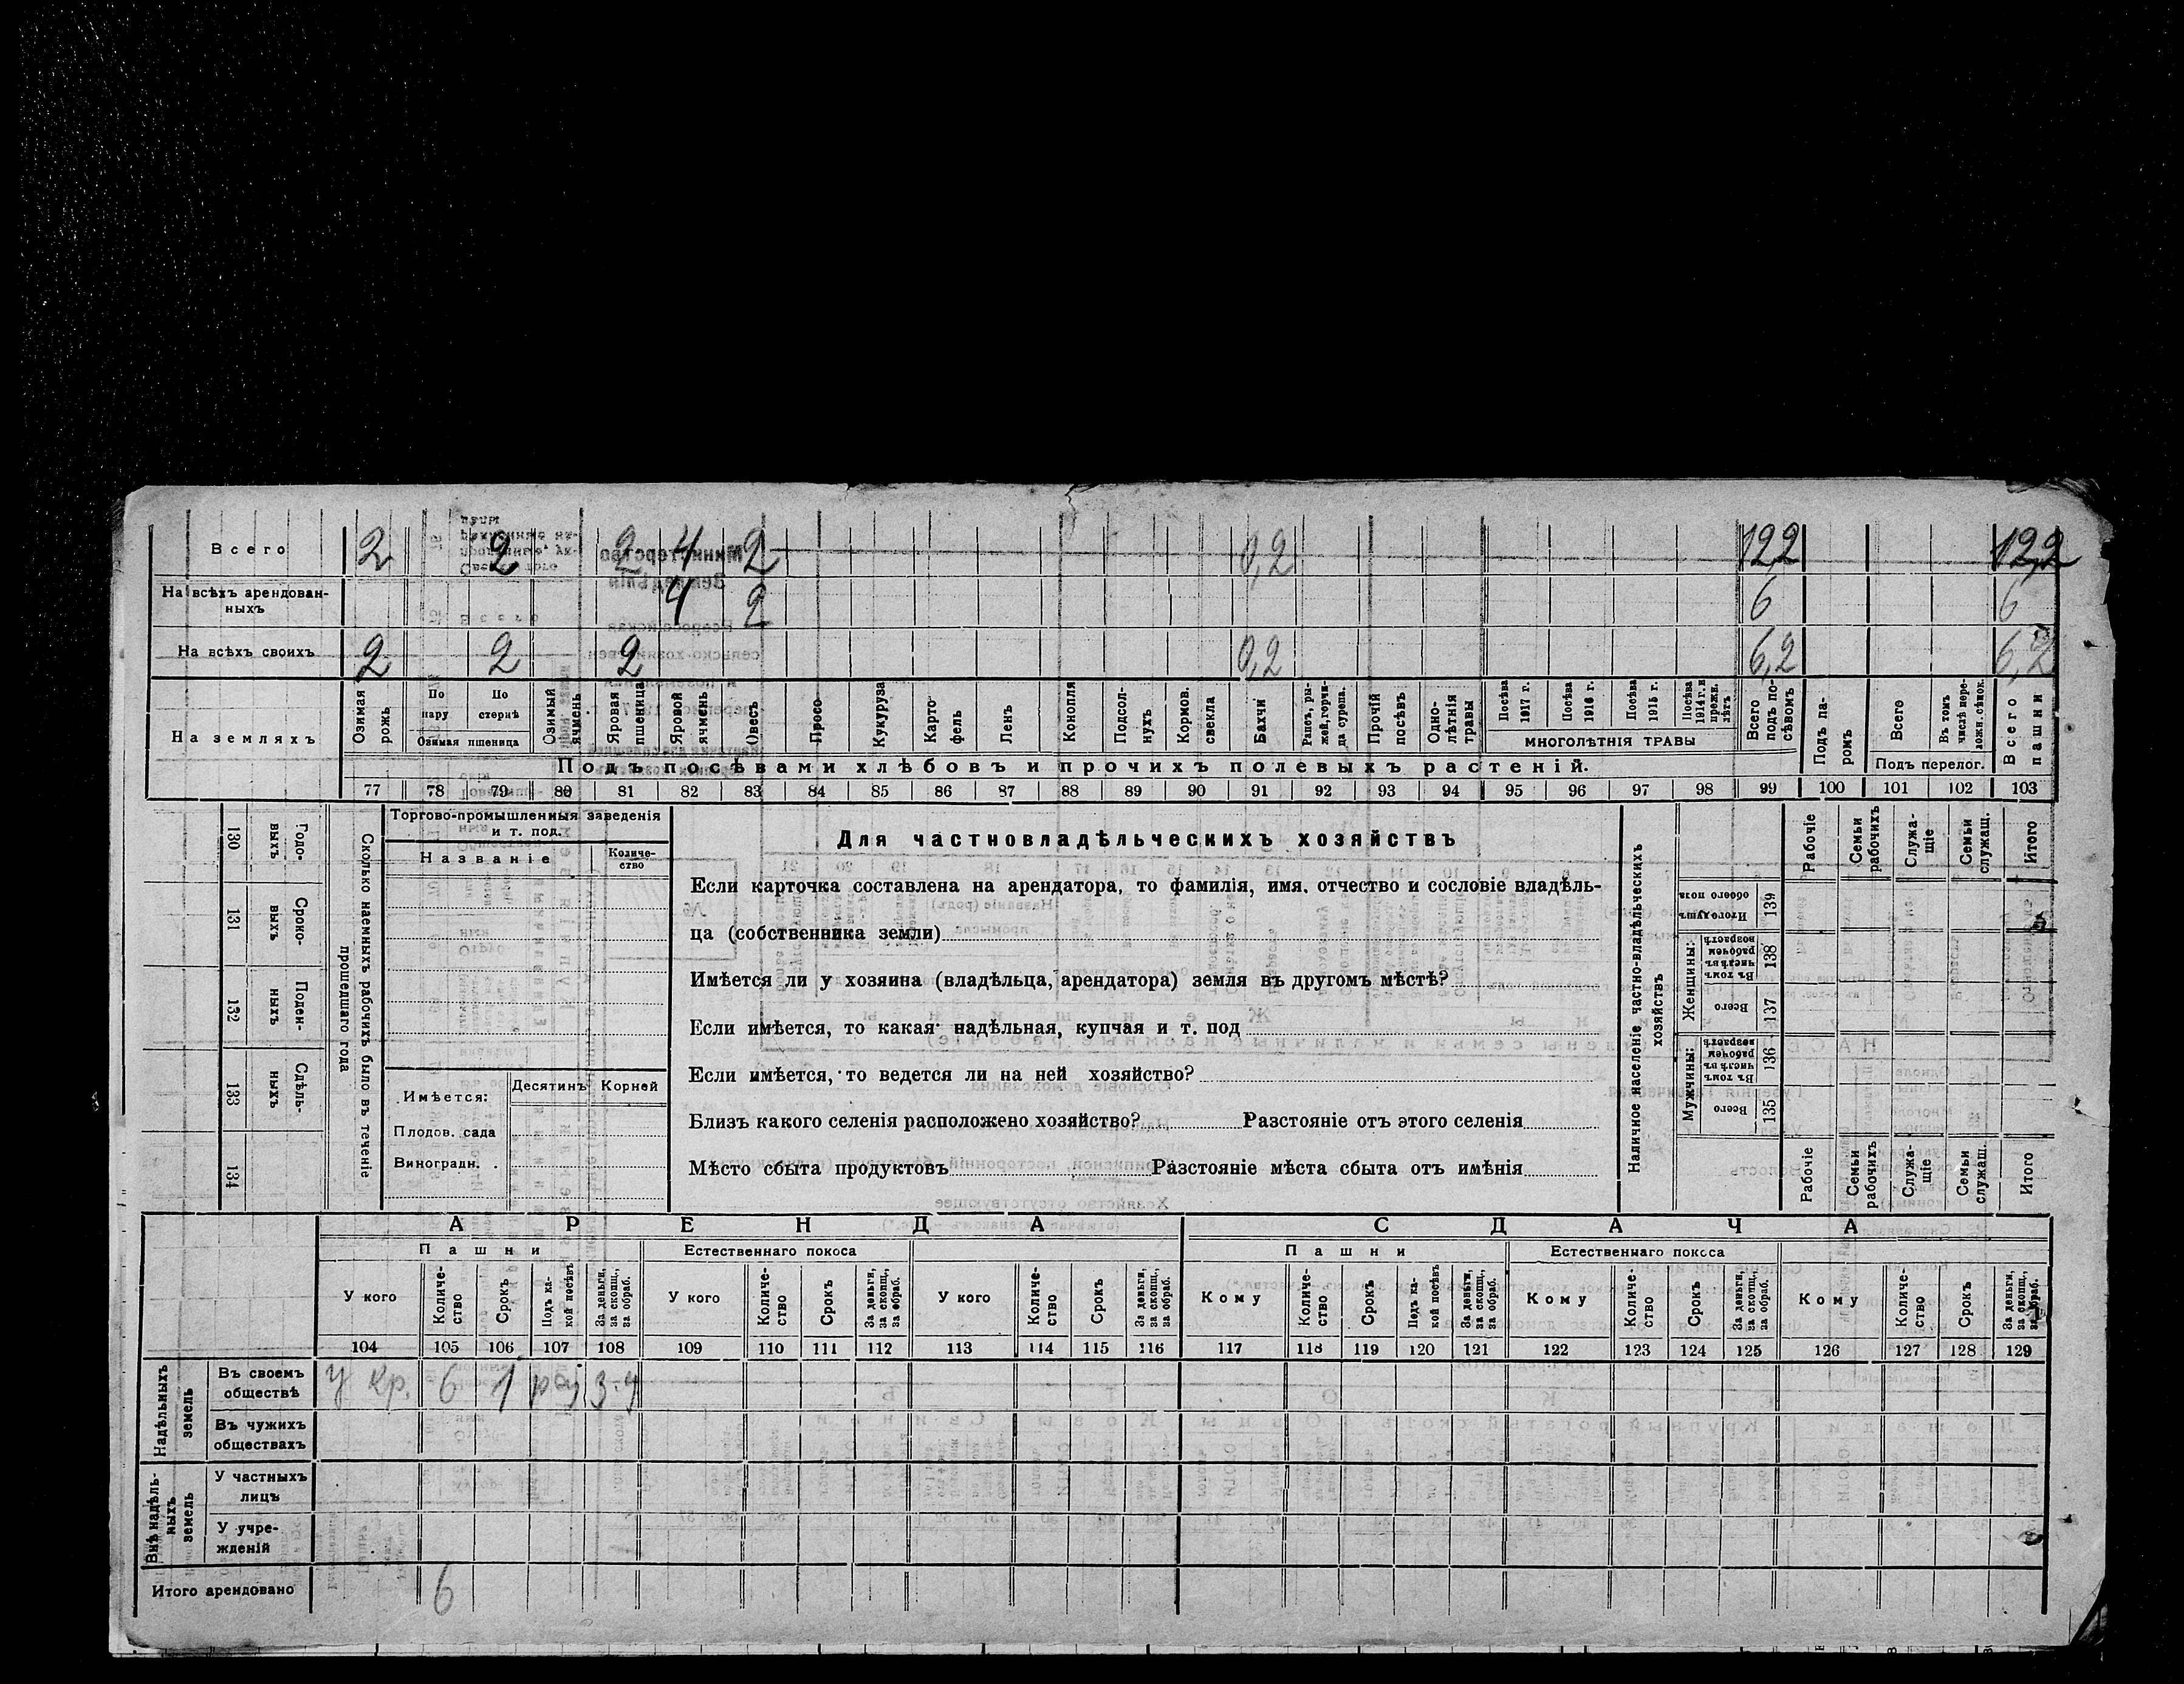 Всего 2 2 2 4 2 0,2 12,2 12,2
На всѣхъ арендован-
ныхъ 4 2 6 6
На всѣхъ своихъ 2 2 2 0,2 6,2 6,2
На земляхъ
Озимая рожь
По пару
По стернѣ
Озимая пшеница
Озимый ячмень
Яровая пшеница
Яровой ячмень
Овесъ
Просо
Кукуруза
Карто-
фель
Ленъ
Конопля
Подсол-
нухъ
Кормов. свекла
Бахчи
Рапсъ, ры-
жей, горчи-
ца сурепа.
Прочій посѣвъ
Одно-
лѣтнія травы
Посѣва 1917 г.
Посѣва 1916 г.
Посѣва 1915 г.
Посѣва 1914 г. и прежн. лѣтъ
МНОГОЛѢТНІЯ ТРАВЫ
Всего подъ по-
сѣвомъ
Подъ па-
ромъ
Всего
Въ томъ числѣ пере-
ложн. сѣнок.
Подъ перелог.
Всего пашни
Подъ посѣвами хлѣбовъ и прочихъ полевыхъ растеній.
77 78 79 80 81 82 83 84 85 86 87 88 89 90 91 92 93 94 95 96 97 98 99 100 101 102 103
130 Годо-
выхъ
131 Сроко-
выхъ
132 Поден-
ныхъ
133 Сдѣль-
ныхъ
134
Сколько наемныхъ рабочихъ было въ теченіе
прошедшаго года
Торгово-промышленныя заведенія
и т. под.
Названіе
Количе-
ство
Имѣется:
Десятинъ Корней
Плодов. сада
Виноградн.
Для частновладѣльческихъ хозяйствъ
Если карточка составлена на арендатора, то фамилія, имя, отчество и сословіе владѣль-
ца (собственника земли)
Имѣется ли у хозяина (владѣльца, арендатора) земля въ другомъ мѣстѣ?
Если имѣется, то какая: надѣльная, купчая и т. под
Если имѣется, то ведется ли на ней хозяйство?
Близъ какого селенія расположено хозяйство? Разстояніе отъ этого селенія
Мѣсто сбыта продуктовъ Разстояніе мѣста сбыта отъ имѣнія
Наличное населеніе частно-владѣльческихъ
хозяйствъ
Итого душъ обоего пола 139
Женщины:
Въ томъ числѣ въ рабочемъ возрастѣ 138
Всего 137
Мужчины:
Въ томъ числѣ въ рабочемъ возрастѣ 136
Всего 135
Рабочіе
Семьи рабочихъ
Служа-
щіе
Семьи служащ.
Итого
Рабочіе
Семьи рабочихъ
Служа-
щіе
Семьи служащ.
Итого
АРЕНДА СДАЧА
Пашни Естественнаго покоса Пашни Естественнаго покоса
У кого
Количе-
ство
Срокъ
Подъ ка-
кой посѣвъ
За деньги, за скопщ., за обраб.
У кого
Количе-
ство
Срокъ
За деньги, за скопщ., за обраб.
У кого
Количе-
ство
Срокъ
За деньги, за скопщ., за обраб.
Кому
Количе-
ство
Срокъ
Подъ ка-
кой посѣвъ
За деньги, за скопщ., за обраб.
Кому
Количе-
ство
Срокъ
За деньги, за скопщ., за обраб.
Кому
Количе-
ство
Срокъ
За деньги, за скопщ., за обраб.
104 105 106 107 108 109 110 111 112 113 114 115 116 117 118 119 120 121 122 123 124 125 126 127 128 129
Надѣльныхъ
земель
Въ своемъ
обществѣ
У кр. 6 1
Въ чужихъ
обществахъ
Внѣ надѣль-
ныхъ
земель
У частныхъ
лицъ
У учре-
жденій
Итого арендовано 6